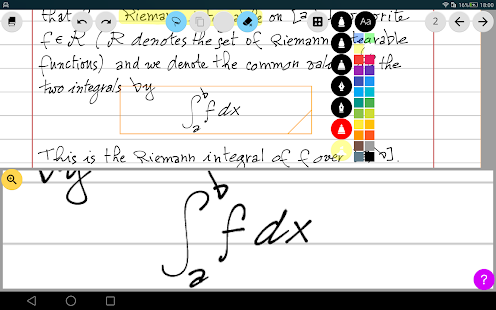 16% 18:00
Aa
2
that Riemann on [a write
f ∈ R (R denotes the set of Riemann
functions) and we denote the common the
two integrals by
∫ₐᵇ f dx
This is the Riemann integral of f over b].
by
∫ₐᵇ f dx
?